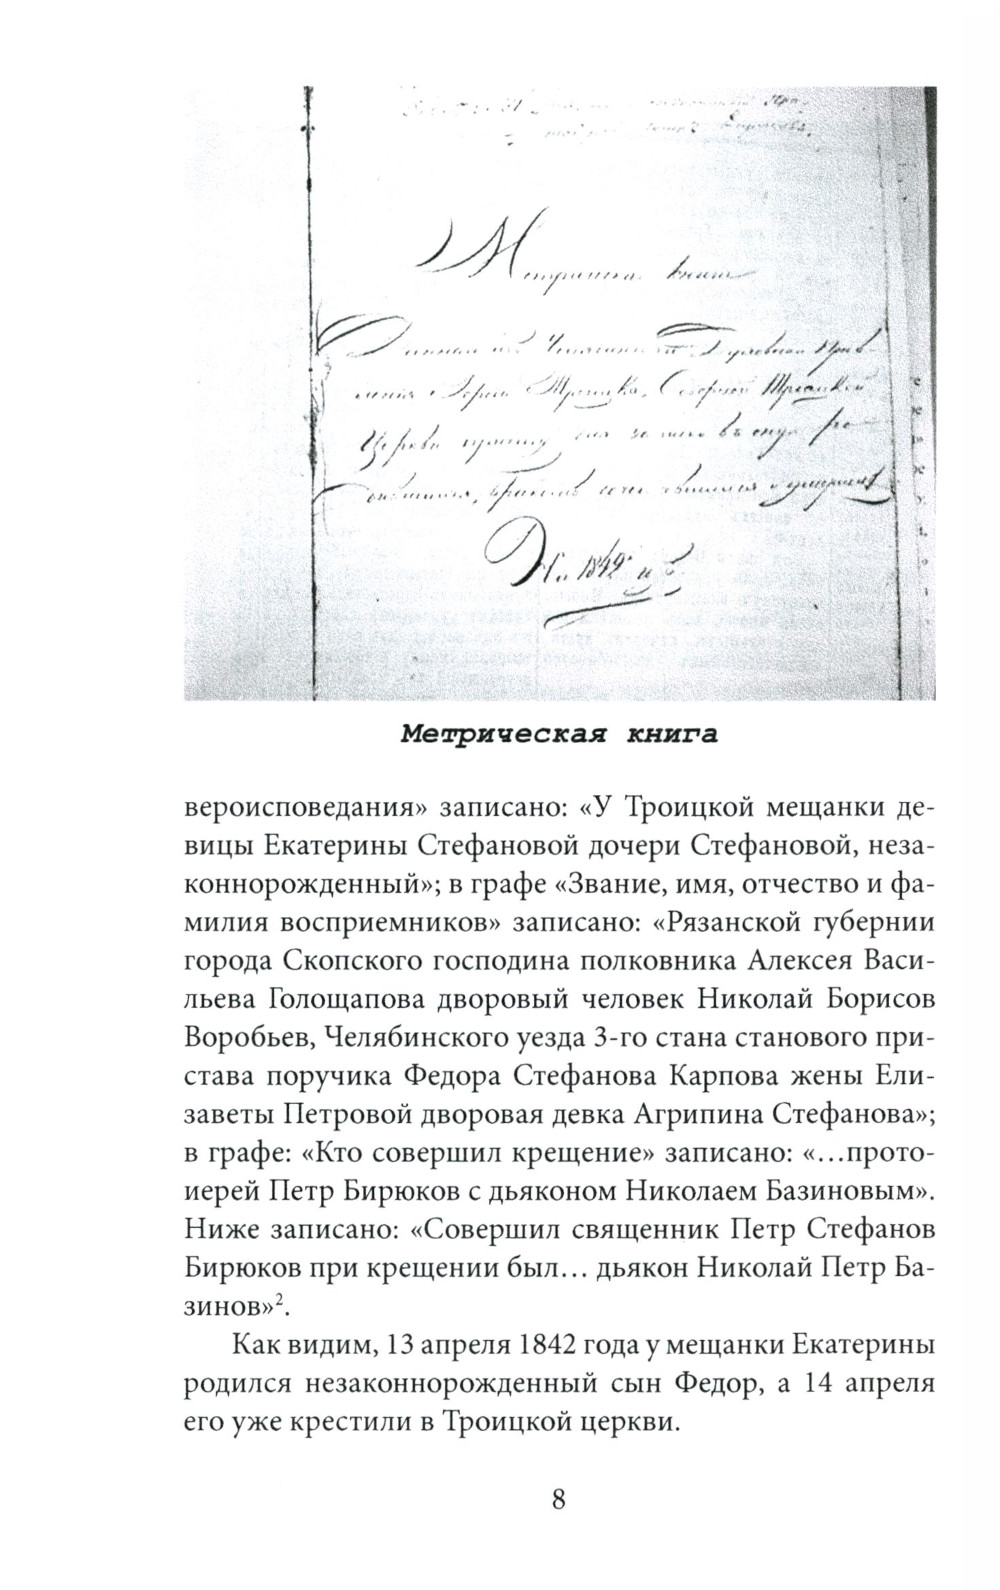 Метрическая книга
Данная изъ Челябинскаго Духовнаго Прав-
ления Города Троицка, Соборной Троицкой
Церкви причту для записи въ оную ро-
дившихся, бракомъ сочетавшихся и умершихъ
На 1842й г.
Метрическая книга
вероисповедания» записано: «У Троицкой мещанки де-
вицы Екатерины Стефановой дочери Стефановой, неза-
коннорожденный»; в графе «Звание, имя, отчество и фа-
милия восприемников» записано: «Рязанской губернии
города Скопского господина полковника Алексея Васи-
льева Голощапова дворовый человек Николай Борисов
Воробьев, Челябинского уезда 3-го стана станового при-
става поручика Федора Стефанова Карпова жены Ели-
заветы Петровой дворовая девка Агрипина Стефанова»;
в графе: «Кто совершил крещение» записано: «…прото-
иерей Петр Бирюков с дьяконом Николаем Базиновым».
Ниже записано: «Совершил священник Петр Стефанов
Бирюков при крещении был… дьякон Николай Петр Ба-
зинов»².
Как видим, 13 апреля 1842 года у мещанки Екатерины
родился незаконнорожденный сын Федор, а 14 апреля
его уже крестили в Троицкой церкви.
8